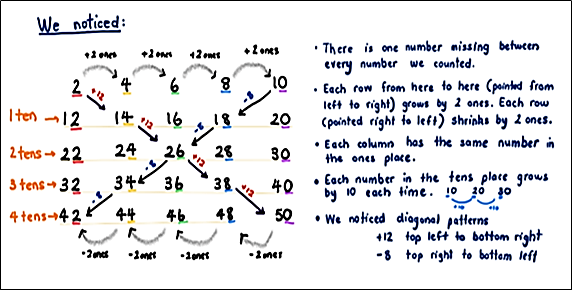 We noticed:
+2 ones +2 ones +2 ones +2 ones
2 4 6 8 10
+12 -8
1 ten → 12 14 16 18 20
+12 -8
2 tens → 22 24 26 28 30
-8 +12
3 tens → 32 34 36 38 40
-8 +12
4 tens → 42 44 46 48 50
-2 ones -2 ones -2 ones -2 ones
• There is one number missing between
every number we counted.
• Each row from here to here (pointed from
left to right) grows by 2 ones. Each row
(pointed right to left) shrinks by 2 ones.
• Each column has the same number in
the ones place.
• Each number in the tens place grows
by 10 each time. 10 20 30
+10 +10
• We noticed diagonal patterns
+12 top left to bottom right
-8 top right to bottom left